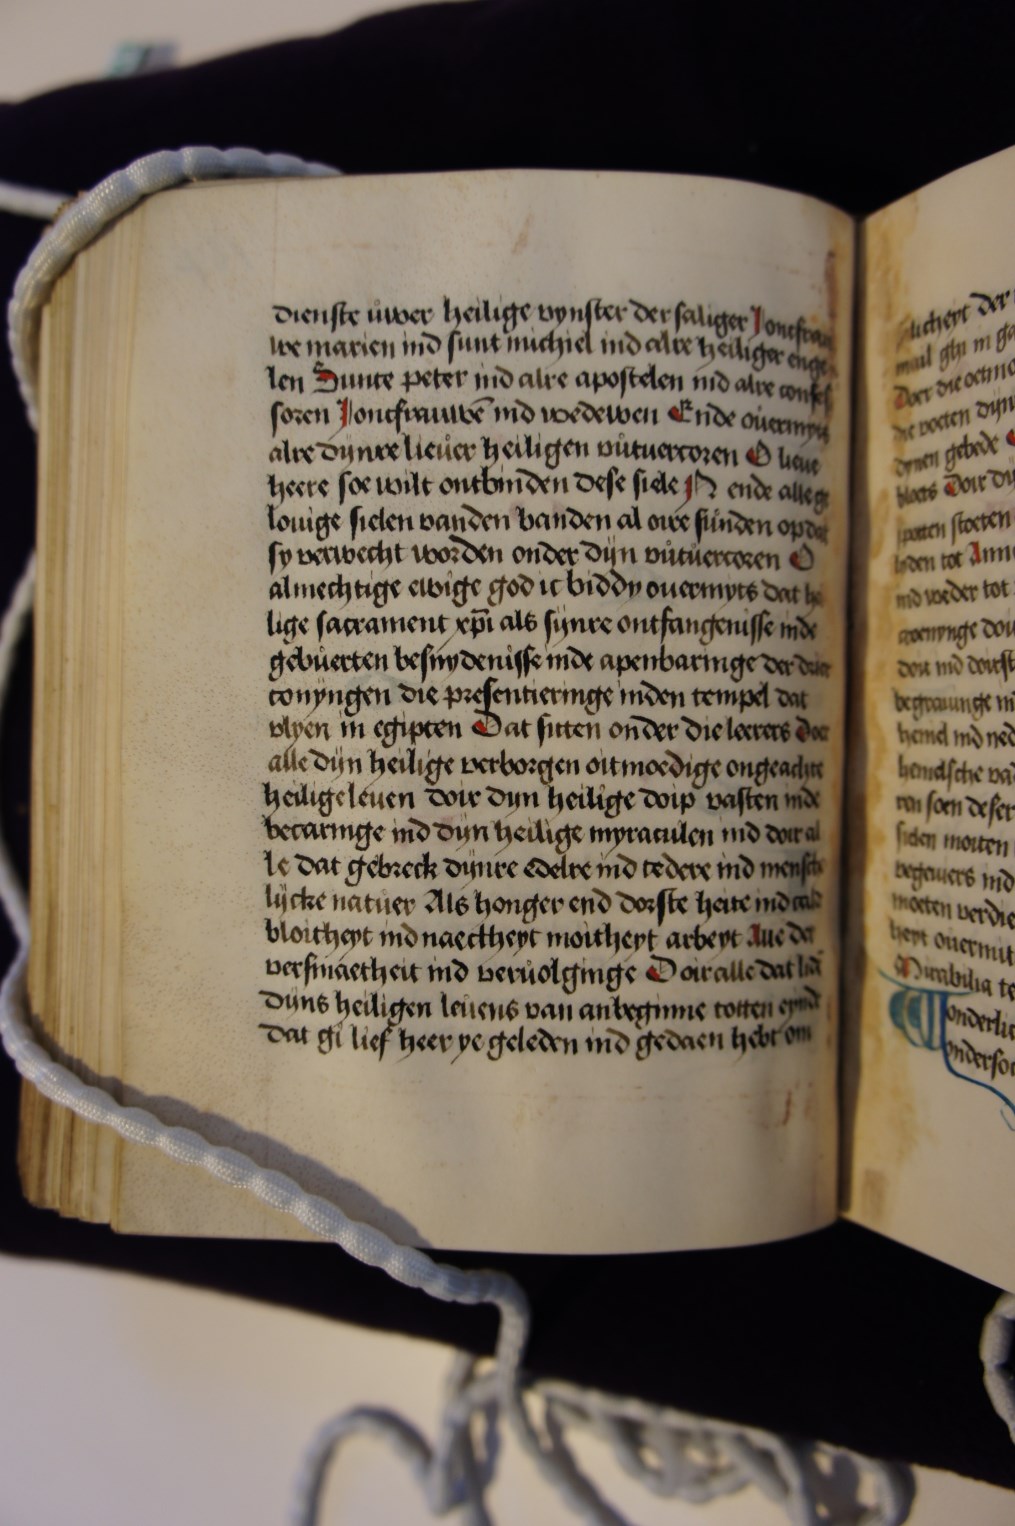 dienste uwer heilige vynster der saliger Joncfrau
we marien ind sunt michiel ind alre heiliger enge
len Sunte peter ind alre apostelen ind alre confes
soren Joncfrauwē ind wedewen Ende ouermyts
alre dynre lieuer heiligen vutuercoren O lieue
heere soe wilt ontbinden dese siele N ende alle ge
louige sielen vanden banden al oire sunden op dat
sy verwecht worden onder dyn vutuercoren O
almechtige ewige god ic biddy ouermyts dat he
lige sacrament xp̄i als synre ontfangenisse inde
gebuerten besnydenisse inde apenbaringe der drier
conyngen die presentieringe inden tempel dat
vlyen in egipten Dat sitten onder die leerers Doer
alle dyn heilige verborgen oitmoedige ongeachte
heilige leuen doir dyn heilige doip vasten inde
becaringe ind dyn heilige myraculen ind doir al
le dat gebreck dynre edelre ind tedere ind mensch
lycke natuer Als honger end dorste heite ind calde
bloitheyt ind naectheyt moitheyt arbeyt der
versmaetheit ind veruolginge Doir alle dat
dyns heiligen leuens van anbeginne totten eynde
dat gi lief heer ye geleden ind gedaen hebt om
lichert der
mail ghi in
Doer die
die voeten dyn
dynen gebede
bloets Doir
stoeten
lyden tot Anne
ind weder tot
doir ind
begrauinge
hemel ind ned
hemelsche
soen deser
siden moiten
begeuers ind
moeten verdie
heyt ouermit
Mirabilia te
onderlic
ondersoe